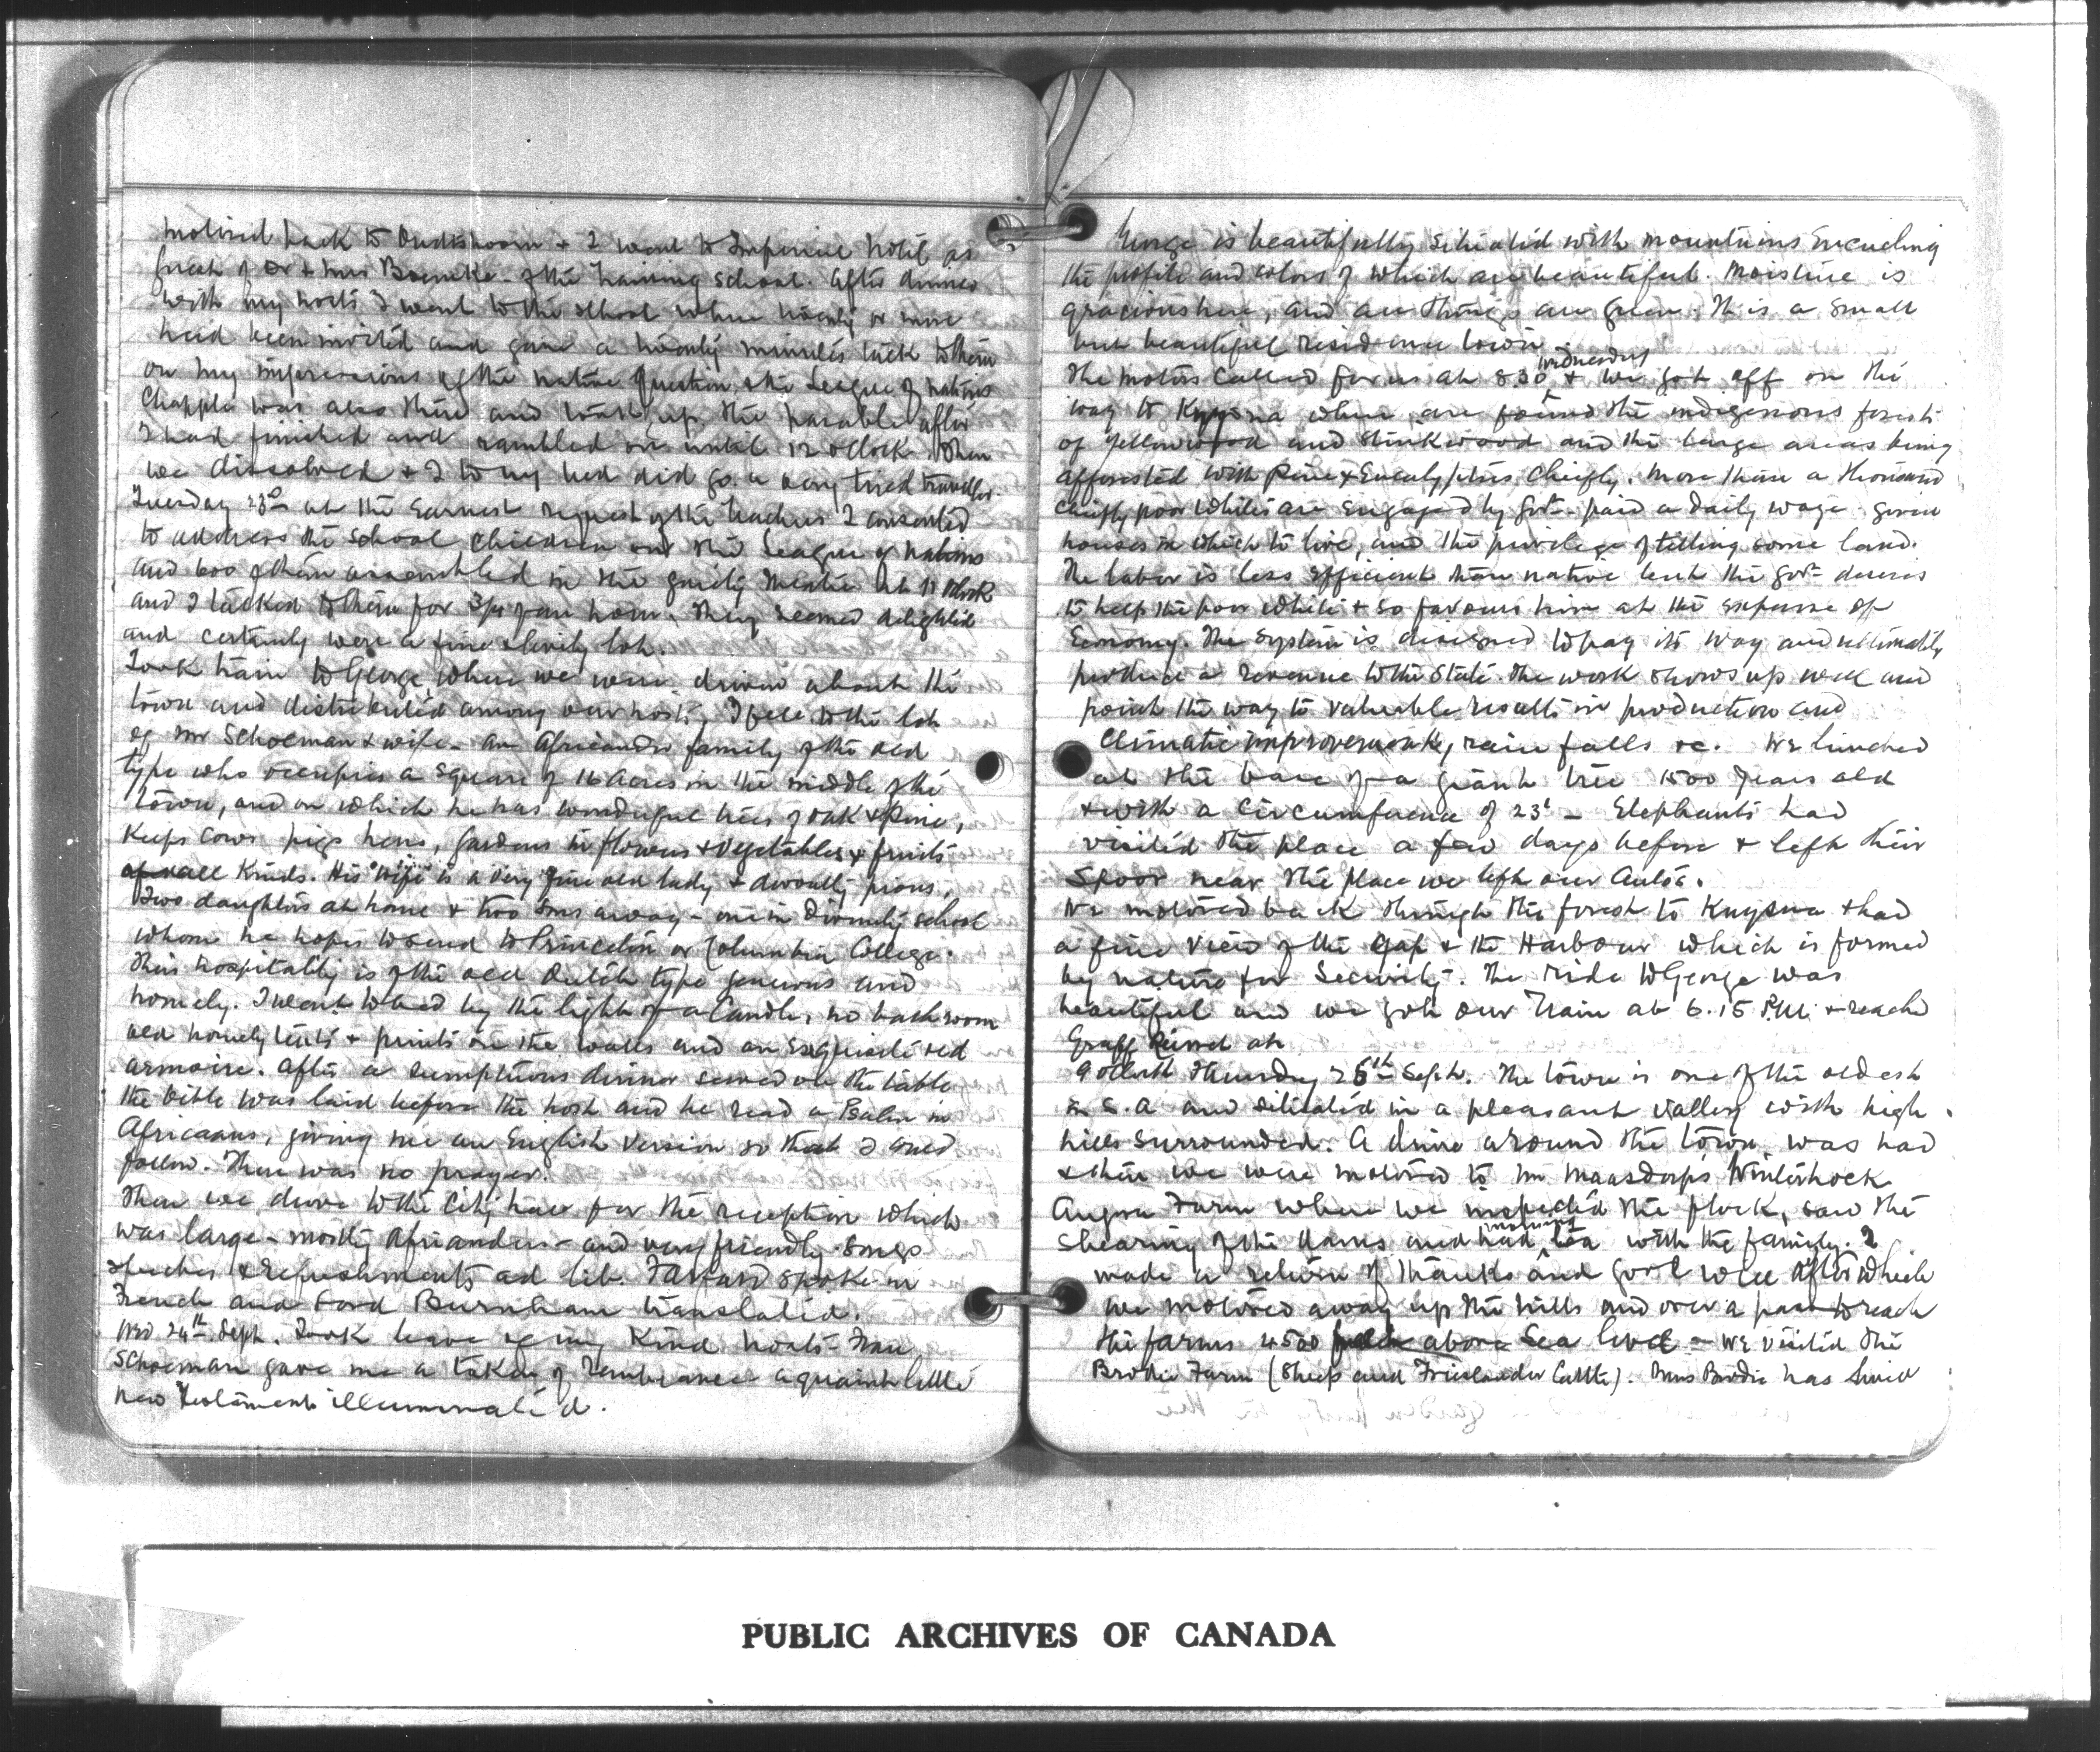 motored back to Oudtshoorn & I went to Imperial Hotel as
guest of Dr & Mrs of the training school. After dinner
with my hosts I went to the school where twenty or more
had been invited and gave a twenty minutes talk to them
on my impressions of the native question & the League of Nations
Chapple was also there and took up the parable after
I had finished and rambled on until 12 oclock. Then
we dissolved & I to my bed did go. a very tired traveller.
Tuesday 23rd at the earnest request of the teachers I consented
to address the School children on the League of Nations
and 600 of them assembled in the gaiety theatre at 11 oclock
and I talked to them for 3/4 of an hour. They seemed delighted
and certainly were a fine lot.
Took train to George where we were driven about the
town and distributed among our hosts, I fell to the lot
of Mr Schoeman & wife - an Africander family of the old
type who occupies a square of 16 acres in the middle of the
town, and on which he has wonderful trees of oak & pine,
keeps cows pigs hens, gardens in flowers & vegetables & fruits
of all kinds. His wife is a very fine old lady & devoutly pious.
Two daughters at home & two sons away - one in Divinity school
whom he hopes to send to Princeton or Columbia College.
Their hospitality is of the old Dutch type generous and
homely. I went to bed by the light of a candle, no bathroom
old homely texts & prints on the walls and an exquisite old
armoire. After a sumptuous dinner served on the table
the bible was laid before the host and he read a Psalm in
Africaans, giving me an English version so that I could
follow. There was no prayer.
Then we drove to the City hall for the reception which
was large - mostly Africanders - and very friendly. Songs
speeches & refreshments ad lib. spoke in
French and Ford Burnham translated.
Wed 24th Sept. Took leave of my kind hosts - Frau
Schoeman gave me a token of remembrance a quaint little
new Testament illuminated.
George is beautifully situated with mountains encircling
the profile and colors of which are beautiful. Moisture is
gracious here, and all things are green. It is a small
but beautiful residence town
The motors called for us at 8.30 Wednesday & we got off on the
way to Knysna where are found the indigenous forests
of Yellowwood and Stinkwood and the large areas being
afforested with Pine & Eucalyptus chiefly. More than a thousand
chiefly poor whites are engaged by Govt - paid a daily wage - given
houses in which to live, and the privilege of tilling some land.
The labor is less efficient than native but the govt desires
to help the poor white & so favours him at the expense of
Economy. The system is designed to pay its way and ultimately
produce a revenue to the State. The work shows up well and
point the way to valuable results in production and
climatic improvement, rain falls &c. We lunched
at the base of a giant tree 1500 years old
& with a circumference of 23' - Elephants had
visited the place a few days before & left their
Spoor near the place we left our autos.
We motored back through the forest to Knysna & had
a fine view of the Gap & the Harbour which is formed
by nature for Security. The ride to George was
beautiful and we got our train at 6.15 P.M. & reached
Graff Reinet at
9 oclock Thursday 25th Sept. The town is one of the oldest
in S.A and situated in a pleasant valley with high
hills surrounded. A drive around the town was had
& then we were motored to Mr Maasdorp's Winterhoek
Angora Farm where we inspected the flock, saw the
shearing of the and had morning tea with the family. I
made a return of thanks and good will after which
we motored away up the hills and over a pass to reach
the farms 4500 feet above Sea level - We visited the
Brodie Farm (Sheep and Frieslander Cattle). Mrs Brodie has lived
PUBLIC ARCHIVES OF CANADA